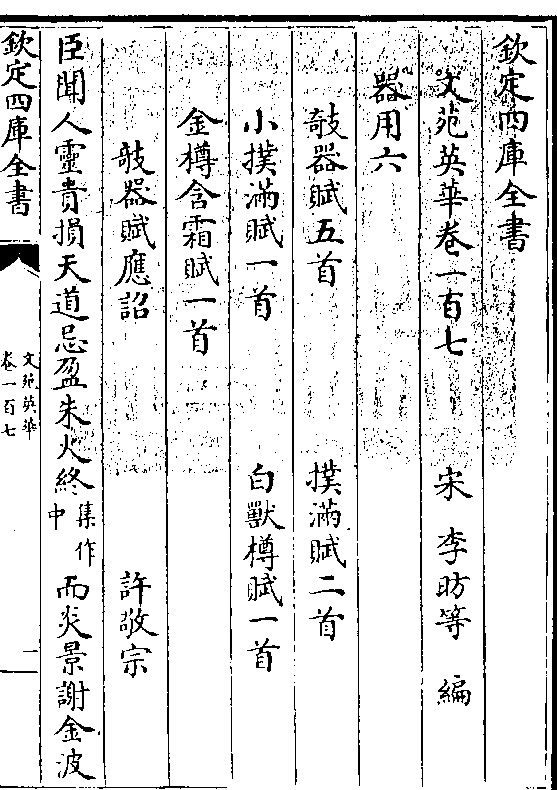 欽定四庫全書
文苑英華卷一百七　宋　李昉等　編
器用六
攲器賦五首　撲滿賦二首
小撲滿賦一首　白獸樽賦一首
金樽含霜賦一首
攲器賦應詔　許敬宗
臣聞人靈貴損天道忌盈朱火終集作中而炎景謝金波
欽定四庫全書
文苑英華
卷一百七
一